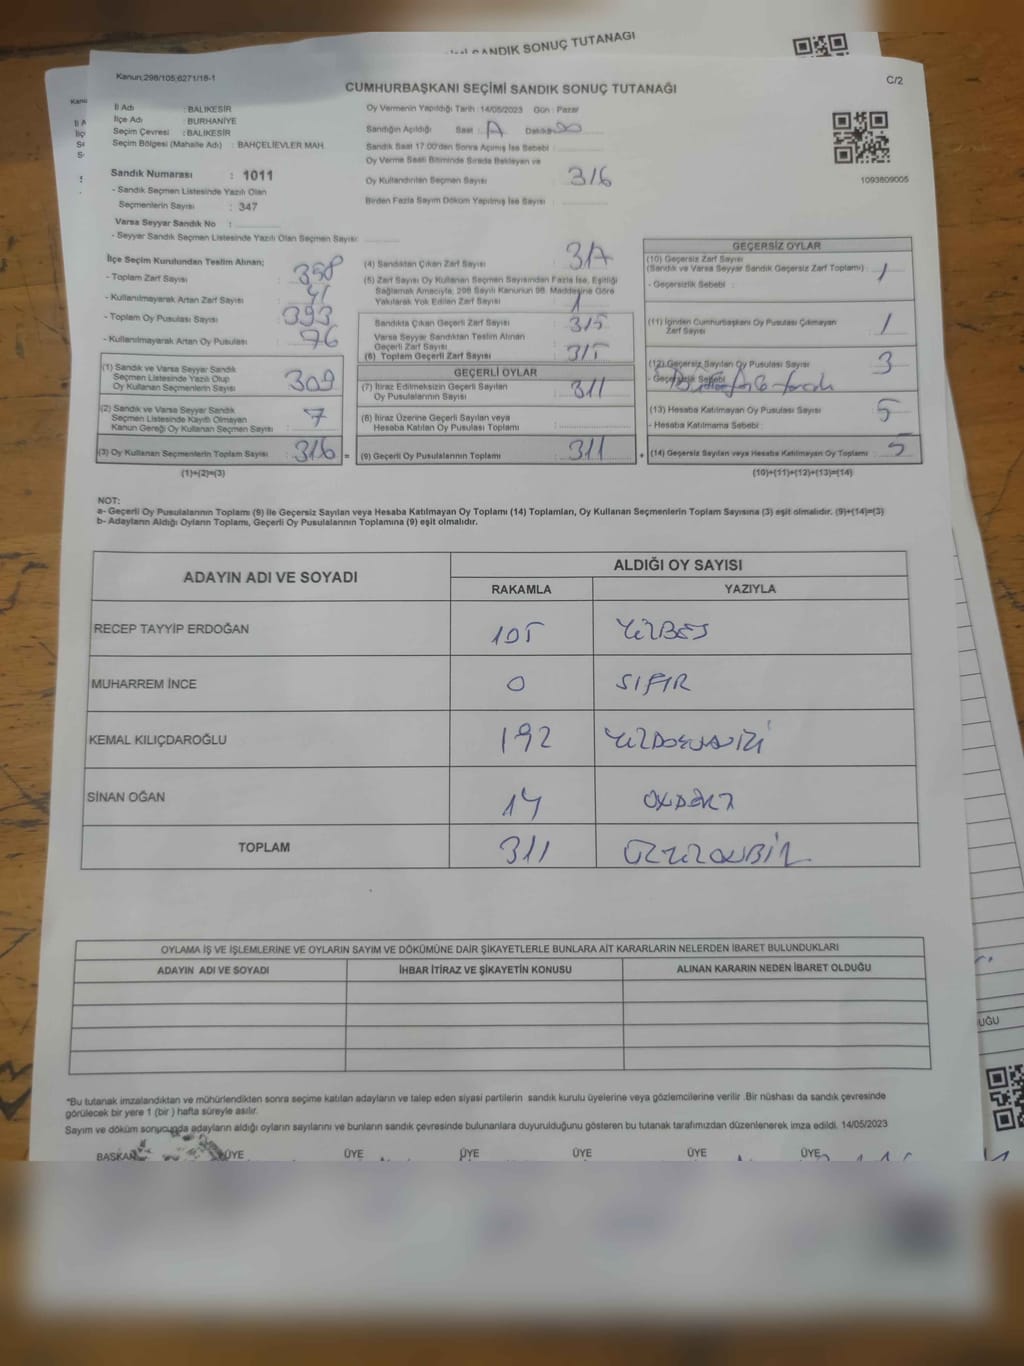 SANDIK SONUÇ TUTANAGI
Kanun;298/105;6271/18-1
C/2
CUMHURBAŞKANI SEÇİMİ SANDIK SONUÇ TUTANAĞI
İl Adı : BALIKESİR
İlçe Adı : BURHANİYE
Seçim Çevresi : BALIKESİR
Seçim Bölgesi (Mahalle Adı) : BAHÇELİEVLER MAH.
Sandık Numarası : 1011
- Sandık Seçmen Listesinde Yazılı Olan
Seçmenlerin Sayısı : 347
Varsa Seyyar Sandık No :
- Seyyar Sandık Seçmen Listesinde Yazılı Olan Seçmen Sayısı:
Oy Vermenin Yapıldığı Tarih :14/05/2023 Gün : Pazar
Sandığın Açıldığı Saat : Dakika
Sandık Saat 17.00'den Sonra Açılmış İse Sebebi :
Oy Verme Saati Bitiminde Sırada Bekleyen ve
Oy Kullandırılan Seçmen Sayısı : 316
Birden Fazla Sayım Döküm Yapılmış İse Sayısı :
1093809005
İlçe Seçim Kurulundan Teslim Alınan;
- Toplam Zarf Sayısı : 358
- Kullanılmayarak Artan Zarf Sayısı : 41
- Toplam Oy Pusulası Sayısı : 393
- Kullanılmayarak Artan Oy Pusulası : 76
(1) Sandık ve Varsa Seyyar Sandık
Seçmen Listesinde Yazılı Olup
Oy Kullanan Seçmenlerin Sayısı : 309
(2) Sandık ve Varsa Seyyar Sandık
Seçmen Listesinde Kayıtlı Olmayan
Kanun Gereği Oy Kullanan Seçmen Sayısı : 7
(3) Oy Kullanan Seçmenlerin Toplam Sayısı : 316 =
(1)+(2)=(3)
(4) Sandıktan Çıkan Zarf Sayısı :
(5) Zarf Sayısı Oy Kullanan Seçmen Sayısından Fazla İse, Eşitliği
Sağlamak Amacıyla, 298 Sayılı Kanunun 98. Maddesine Göre
Yakılarak Yok Edilen Zarf Sayısı : 1
Sandıkta Çıkan Geçerli Zarf Sayısı : 315
Varsa Seyyar Sandıktan Teslim Alınan
Geçerli Zarf Sayısı
(6) Toplam Geçerli Zarf Sayısı : 315
GEÇERLİ OYLAR
(7) İtiraz Edilmeksizin Geçerli Sayılan
Oy Pusulasının Sayısı : 311
(8) İtiraz Üzerine Geçerli Sayılan veya
Hesaba Katılan Oy Pusulası Toplamı :
(9) Geçerli Oy Pusulalarının Toplamı : 311 +
GEÇERSİZ OYLAR
(10) Geçersiz Zarf Sayısı
(Sandık ve Varsa Seyyar Sandık Geçersiz Zarf Toplamı) : 1
- Geçersizlik Sebebi :
(11) İçinden Cumhurbaşkanı Oy Pusulası Çıkmayan
Zarf Sayısı : 1
(12) Geçersiz Sayılan Oy Pusulası Sayısı : 3
- Geçersizlik Sebebi
(13) Hesaba Katılmayan Oy Pusulası Sayısı : 5
- Hesaba Katılmama Sebebi :
(14) Geçersiz Sayılan veya Hesaba Katılmayan Oy Toplamı : 5
(10)+(11)+(12)+(13)=(14)
NOT:
a- Geçerli Oy Pusulalarının Toplamı (9) ile Geçersiz Sayılan veya Hesaba Katılmayan Oy Toplamı (14) Toplamları, Oy Kullanan Seçmenlerin Toplam Sayısına (3) eşit olmalıdır. (9)+(14)=(3)
b- Adayların Aldığı Oyların Toplamı, Geçerli Oy Pusulalarının Toplamına (9) eşit olmalıdır.
ADAYIN ADI VE SOYADI
ALDIĞI OY SAYISI
RAKAMLA YAZIYLA
RECEP TAYYİP ERDOĞAN 105 YÜZBEŞ
MUHARREM İNCE 0 SIFIR
KEMAL KILIÇDAROĞLU 192 YÜZDOKSANİKİ
SİNAN OĞAN 14 ONDÖRT
TOPLAM 311 ÜÇYÜZONBİR
OYLAMA İŞ VE İŞLEMLERİNE VE OYLARIN SAYIM VE DÖKÜMÜNE DAİR ŞİKAYETLERLE BUNLARA AİT KARARLARIN NELERDEN İBARET BULUNDUKLARI
ADAYIN ADI VE SOYADI İHBAR İTİRAZ VE ŞİKAYETİN KONUSU ALINAN KARARIN NEDEN İBARET OLDUĞU
UĞU
*Bu tutanak imzalandıktan ve mühürlendikten sonra seçime katılan adayların ve talep eden siyasi partilerin sandık kurulu üyelerine veya gözlemcilerine verilir .Bir nüshası da sandık çevresinde
görülecek bir yere 1 (bir ) hafta süreyle asılır.
Sayım ve döküm sonucunda adayların aldığı oyların sayılarını ve bunların sandık çevresinde bulunanlara duyurulduğunu gösteren bu tutanak tarafımızdan düzenlenerek imza edildi. 14/05/2023
BAŞKAN ÜYE ÜYE ÜYE ÜYE ÜYE ÜYE